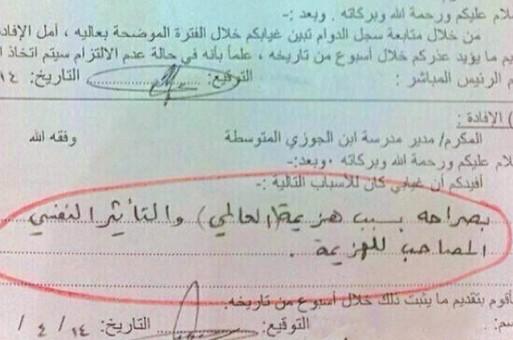 لام عليكم ورحمة الله وبركاته . وبعد :-
من خلال متابعة سجل الدوام تبين غيابكم خلال الفترة الموضحة بعاليه ، أمل الإفاد
يم ما يؤيد عذركم خلال أسبوع من تاريخه ، علماً بأنه في حالة عدم الالتزام سيتم اتخاذ ا
م الرئيس المباشر : التوقيع: التاريخ: ١٤
) الإفادة :
المكرم/ مدير مدرسة ابن الجوزي المتوسطة وفقه الله
لام عليكم ورحمة الله وبركاته ،وبعد:-
أفيدكم أن غيابي كان للأسباب التالية :-
بصراحه بسبب هزيمة (العالمي) والتأثير النفسي
المصاحب للهزيمة .
أقوم بتقديم ما يثبت ذلك خلال أسبوع من تاريخه.
سم: التوقيع: التاريخ: ١٤ / ٤ /